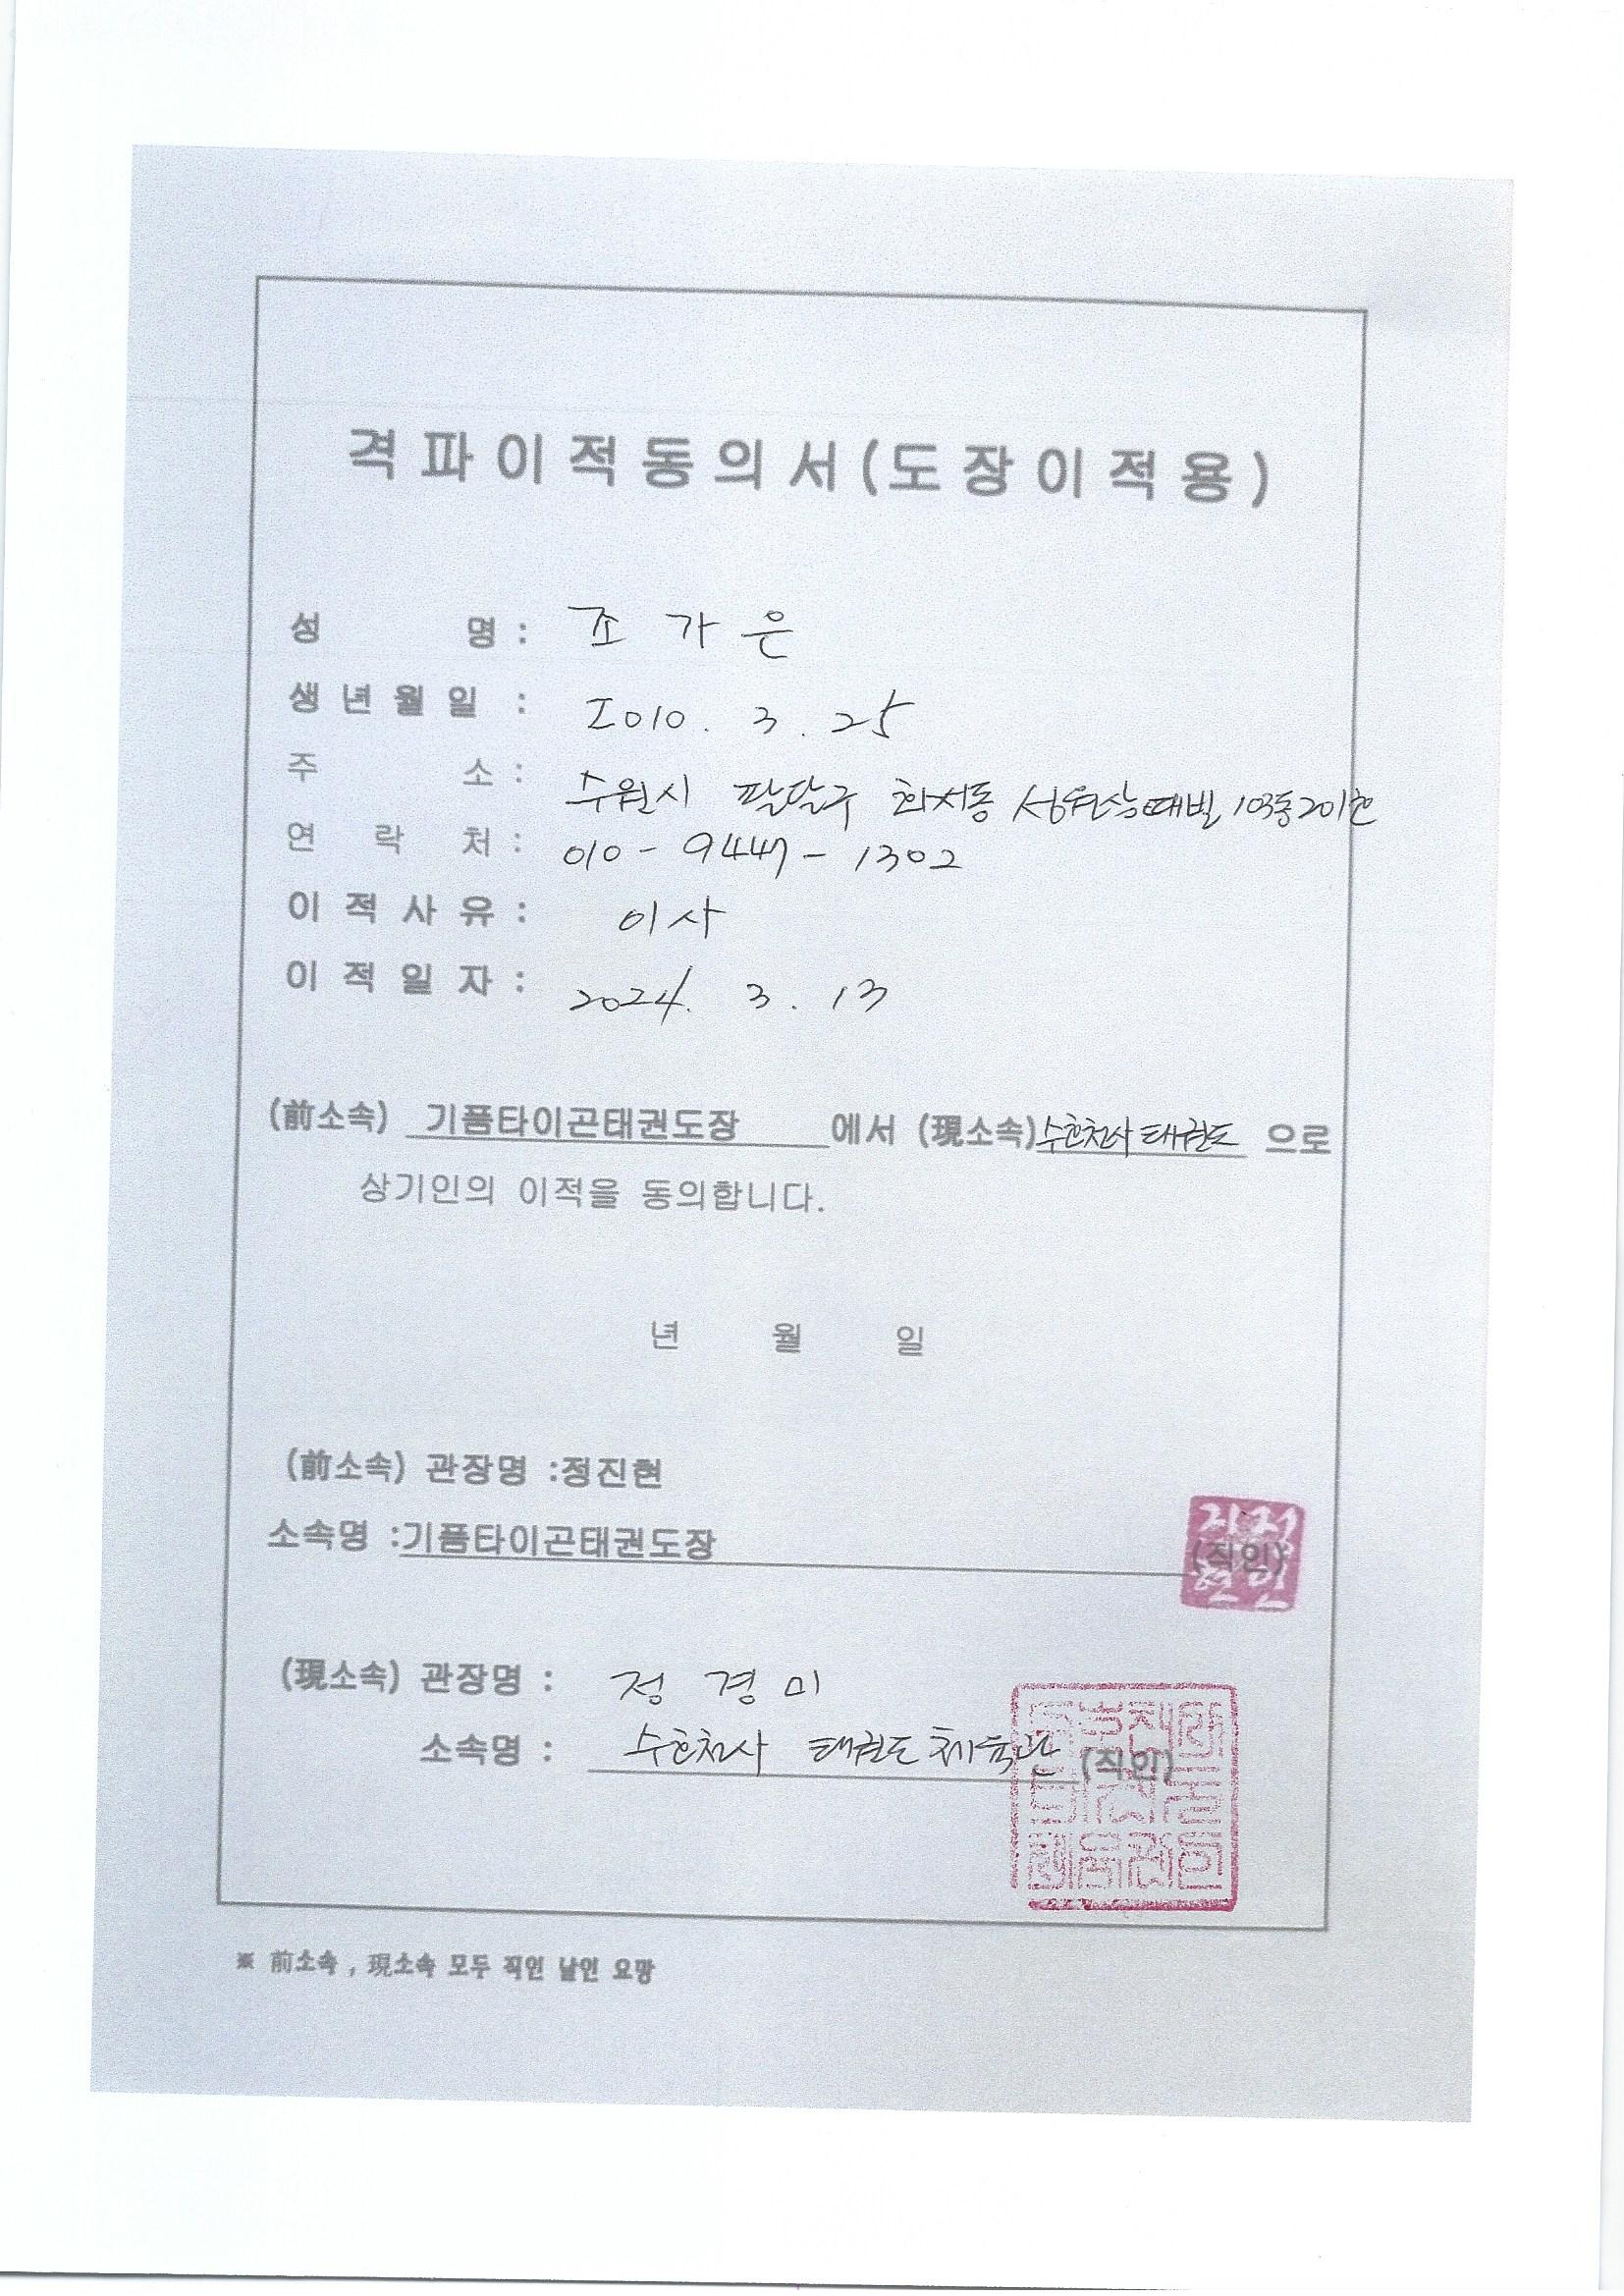 격파이적동의서(도장이적용)
성 명 : 조가은
생년월일 : 2010. 3. 25
주 소 : 수원시 팔달구 화서동 성원상떼빌 103동 201호
연 락 처 : 010-9447-1302
이적사유 : 이사
이적일자 : 2024. 3. 13
(前소속) 기품타이곤태권도장 에서 (現소속) 수호천사 태권도 으로
상기인의 이적을 동의합니다.
년 월 일
(前소속) 관장명 :정진현
소속명 :기품타이곤태권도장 (직인)
(現소속) 관장명 : 정경미
소속명 : 수호천사 태권도 체육관 (직인)
※ 前소속, 現소속 모두 직인 날인 요망